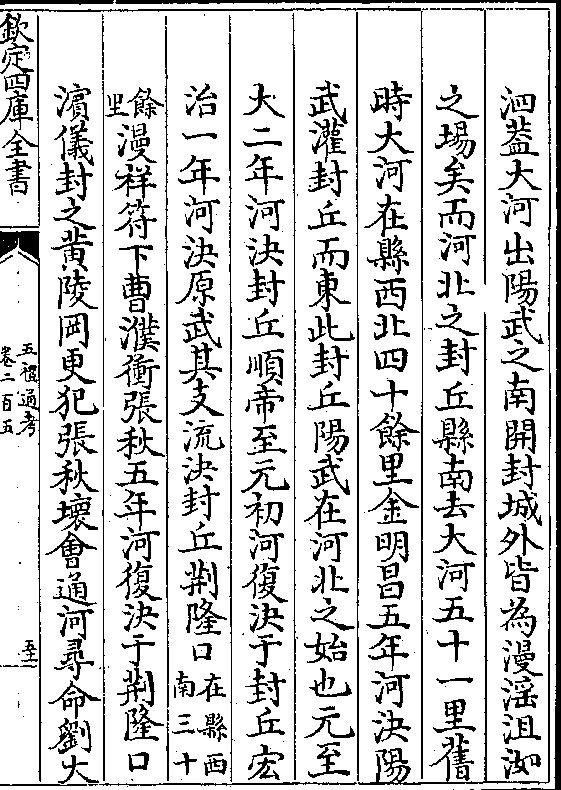 泗葢大河出陽武之南開封城外皆為漫淫沮洳
之場矣而河北之封丘縣南去大河五十一里舊
時大河在縣西北四十餘里金明昌五年河決陽
武灌封丘而東此封丘陽武在河北之始也元至
大二年河決封丘順帝至元初河復決于封丘宏
治一年河決原武其支流決封丘荆隆口在縣西南三十
餘里漫祥符下曹濮衝張秋五年河復決于荆隆口
濵儀封之黄陵岡更犯張秋壞會通河尋命劉大
欽定四庫全書
五禮通考
卷二百五